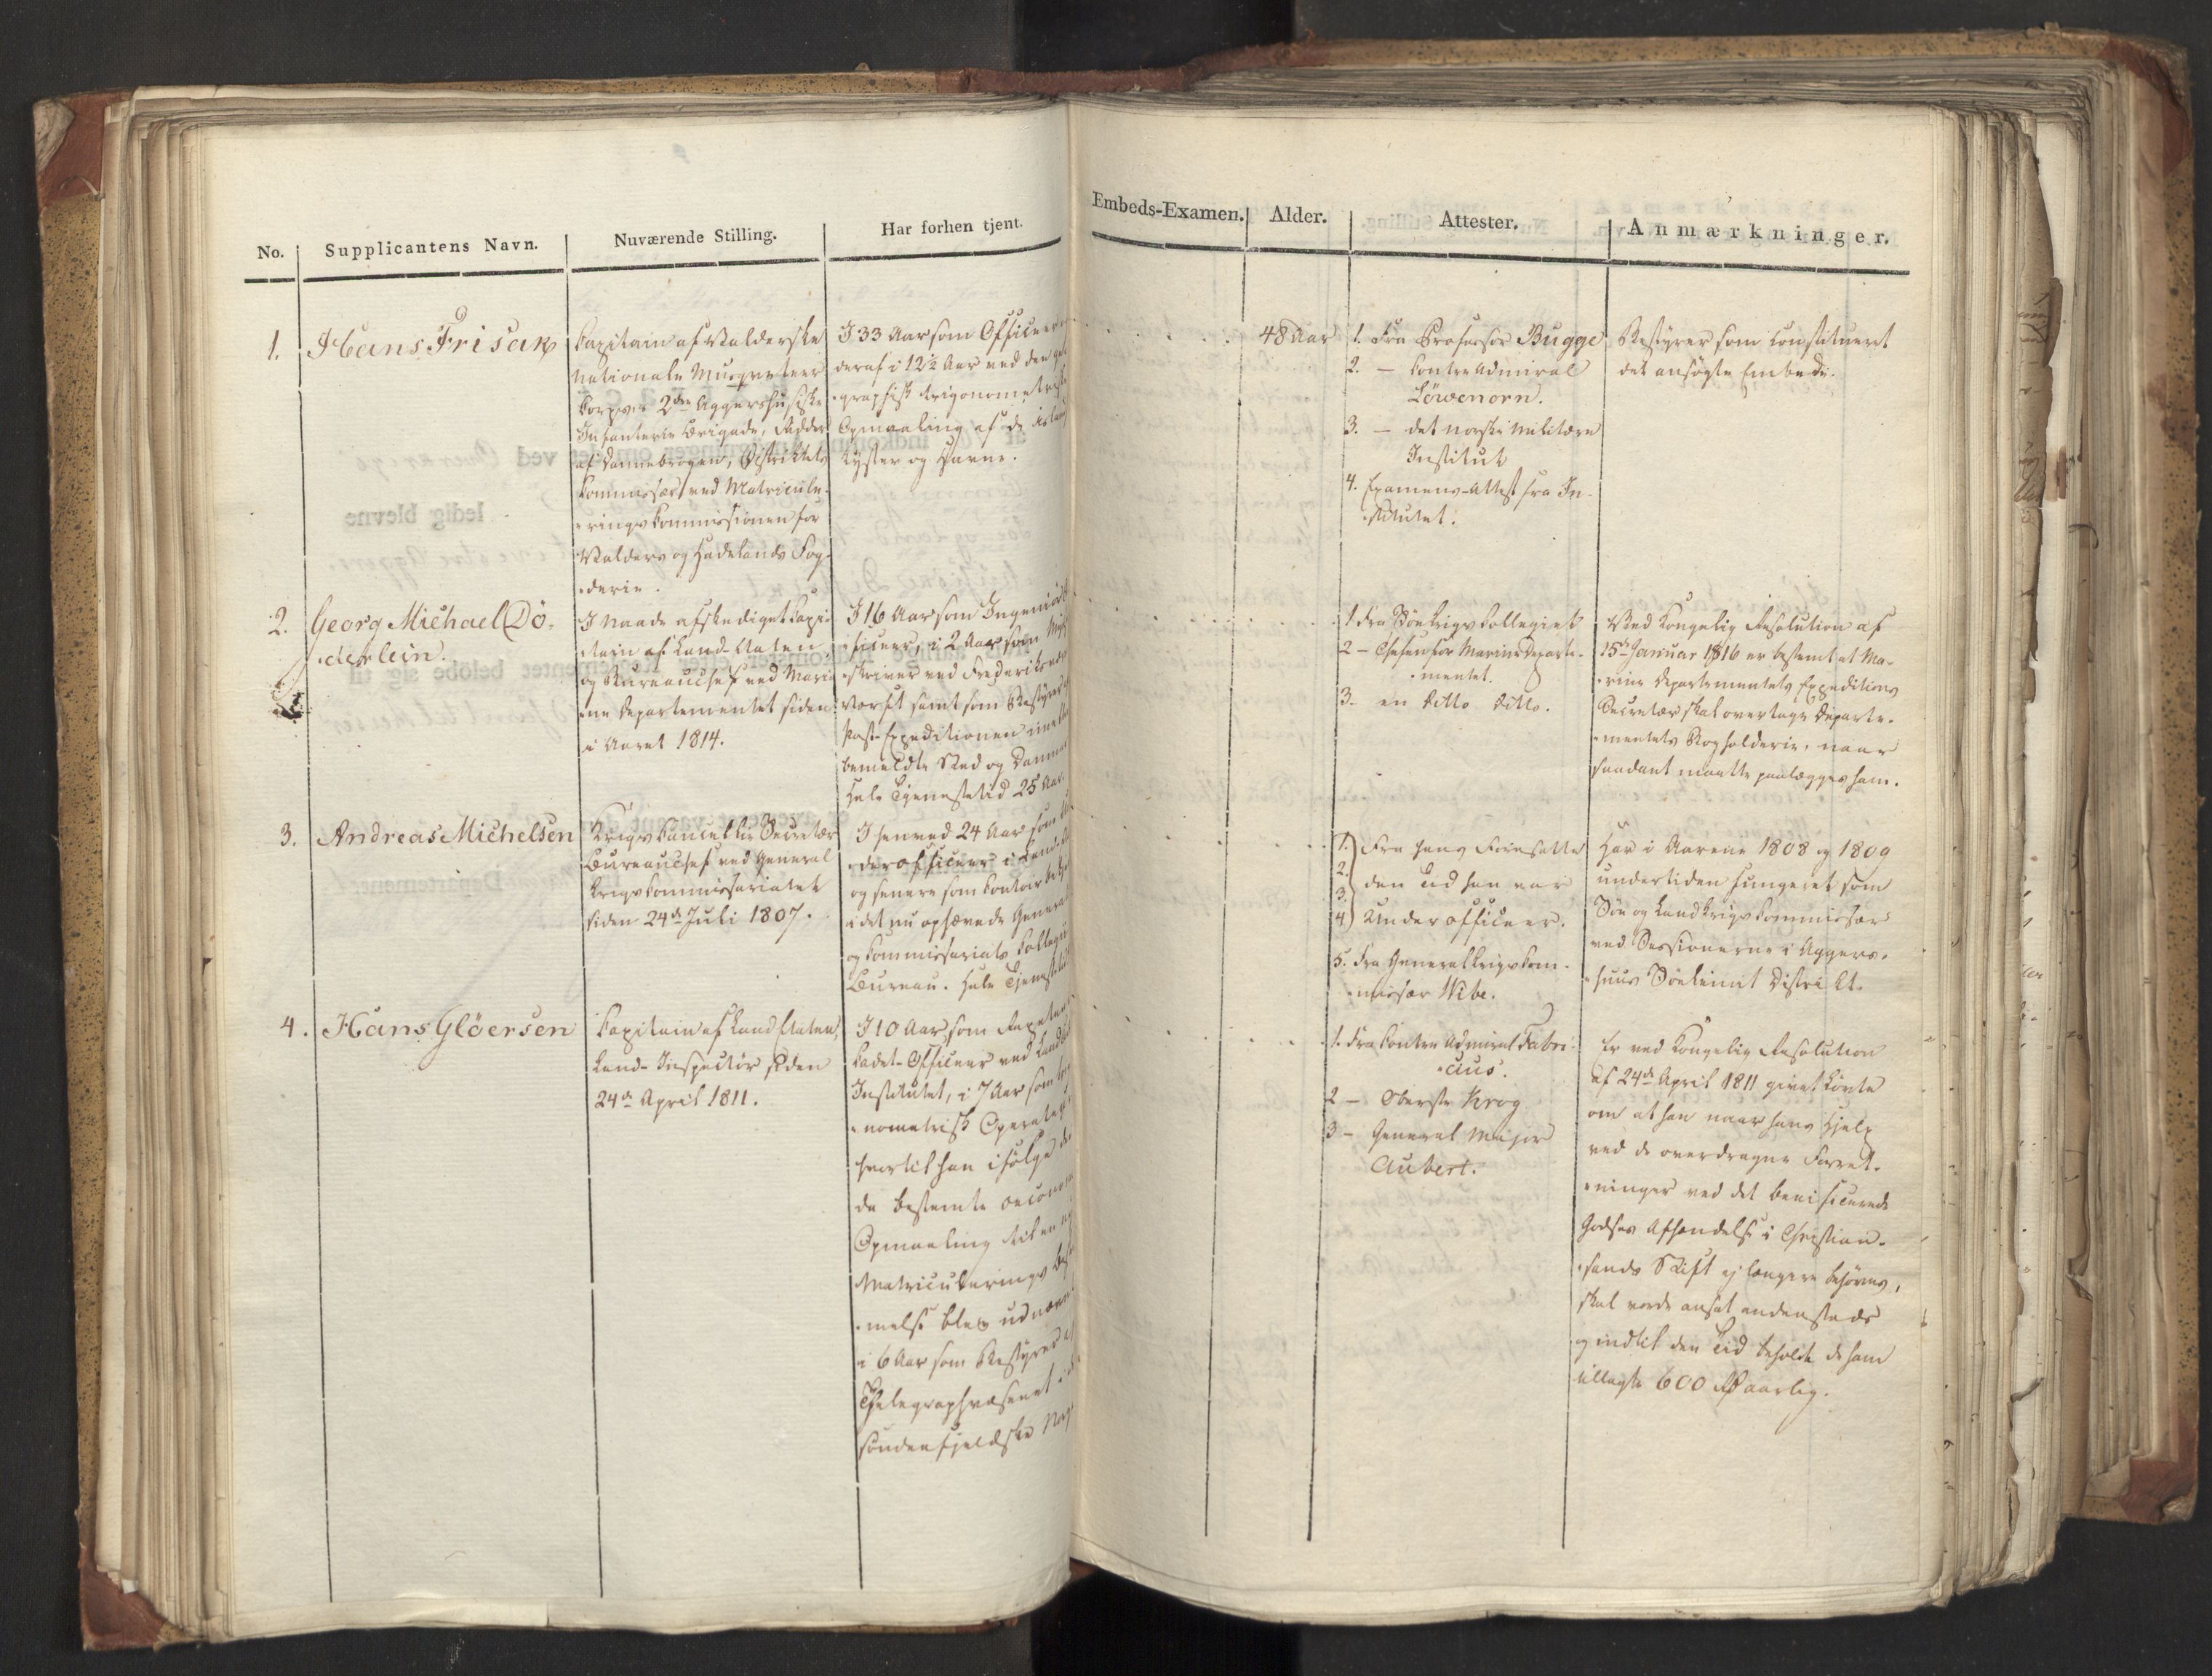 No.
Supplicantens Navn.
Nuværende Stilling.
Har forhen tjent.
Embeds-Examen.
Alder.
Attester.
Anmærkninger.
1.
Hans Frisak
Capitain af Valderske
nationale Musqveteer
Corps 2den Aggershusiske
Infanterie Brigade, Ridder
af Dannebrogen, Districts
Commissær ved Matricule-
rings Commissionen for
Valders og Hadelands Fog-
derie.
I 33 Aar som Officeer
deraf i 12½ Aar ved den
graphisk trigonometriske
Opmaaling af de
Kyster og Havne.
48 Aar
1. Fra Professor Bugge
2. — Contre Admiral
Löwenorn.
3. — det norske militære
Institut
4. Examens-Attest fra In-
stitutet.
Bestyrer som constitueret
det ansøgte Embede.
2.
Georg Michael Dö-
derlein.
I Naade afskediget Capi-
tain af Land-Etaten,
og Bureauchef ved Mari-
ne Departementet siden
i Aaret 1814.
I 16 Aar som Ingenieur
ficeer, i 2 Aar som
skriver ved Frederiks
Værft samt som Bestyrer
Post-Expeditionen
bemeldte Sted og
Hele Tjenestetid 25 Aar.
1 Fra Søe Krigs Collegiet
2 — Chefen for Marine Departe-
mentet.
3 - en ditto ditto.
Ved Kongelig Resolution af
15de Januar 1816 er bestemt at Ma-
rine Departementets Expeditions
Secretær skal overtage Departe-
mentets Bogholderie, naar
saadant maatte paalægges ham.
3.
Andreas Michelsen
Krigs Cancellie Secretær
Bureauchef ved General
Krigs Commissariatet
siden 24de Juli 1807.
I henved 24 Aar som
derofficeer i Land
og senere som Contoir
i det nu ophævede General
og Commissariats Collegii
Bureau. Hele Tjenestetid
1.
2.
3.
4.
Fra hans Foresatte
den Tid han var
Underofficeer.
5. Fra General Krigs Com-
missær Wibe.
Har i Aarene 1808 og 1809
undertiden fungeret som
Søe og Land Krigs Commissær
ved Sessionerne i Aggers-
huus Søelimit District.
4.
Hans Glöersen
Capitain af Land Etaten,
Land-Inspecteur siden
24de April 1811.
I 10 Aar som
Cadet-Officeer ved
Institutet, i 7 Aar som
nometrisk
hvortil han ifølge
da bestemte
Opmaaling til en
Matriculerings
melse blev udnævnt
i 6 Aar som Bestyrer
Thelegraphvæsenet
søndenfjeldske
1. Fra Contre Admiral Fabri-
cius.
2 — Oberste Krog
3 — General Major
Aubert.
Er ved Kongelig Resolution
af 24de April 1811 givet Løvte
om at han naar hans Hjelp
ved de overdragne Forret-
ninger ved det beneficerede
Godses Afhændelse i Christian-
sands Stift ej længere behøves,
skal vorde ansat andensteds
og indtil den Tid beholde de ham
tillagte 600 Rd aarlig.